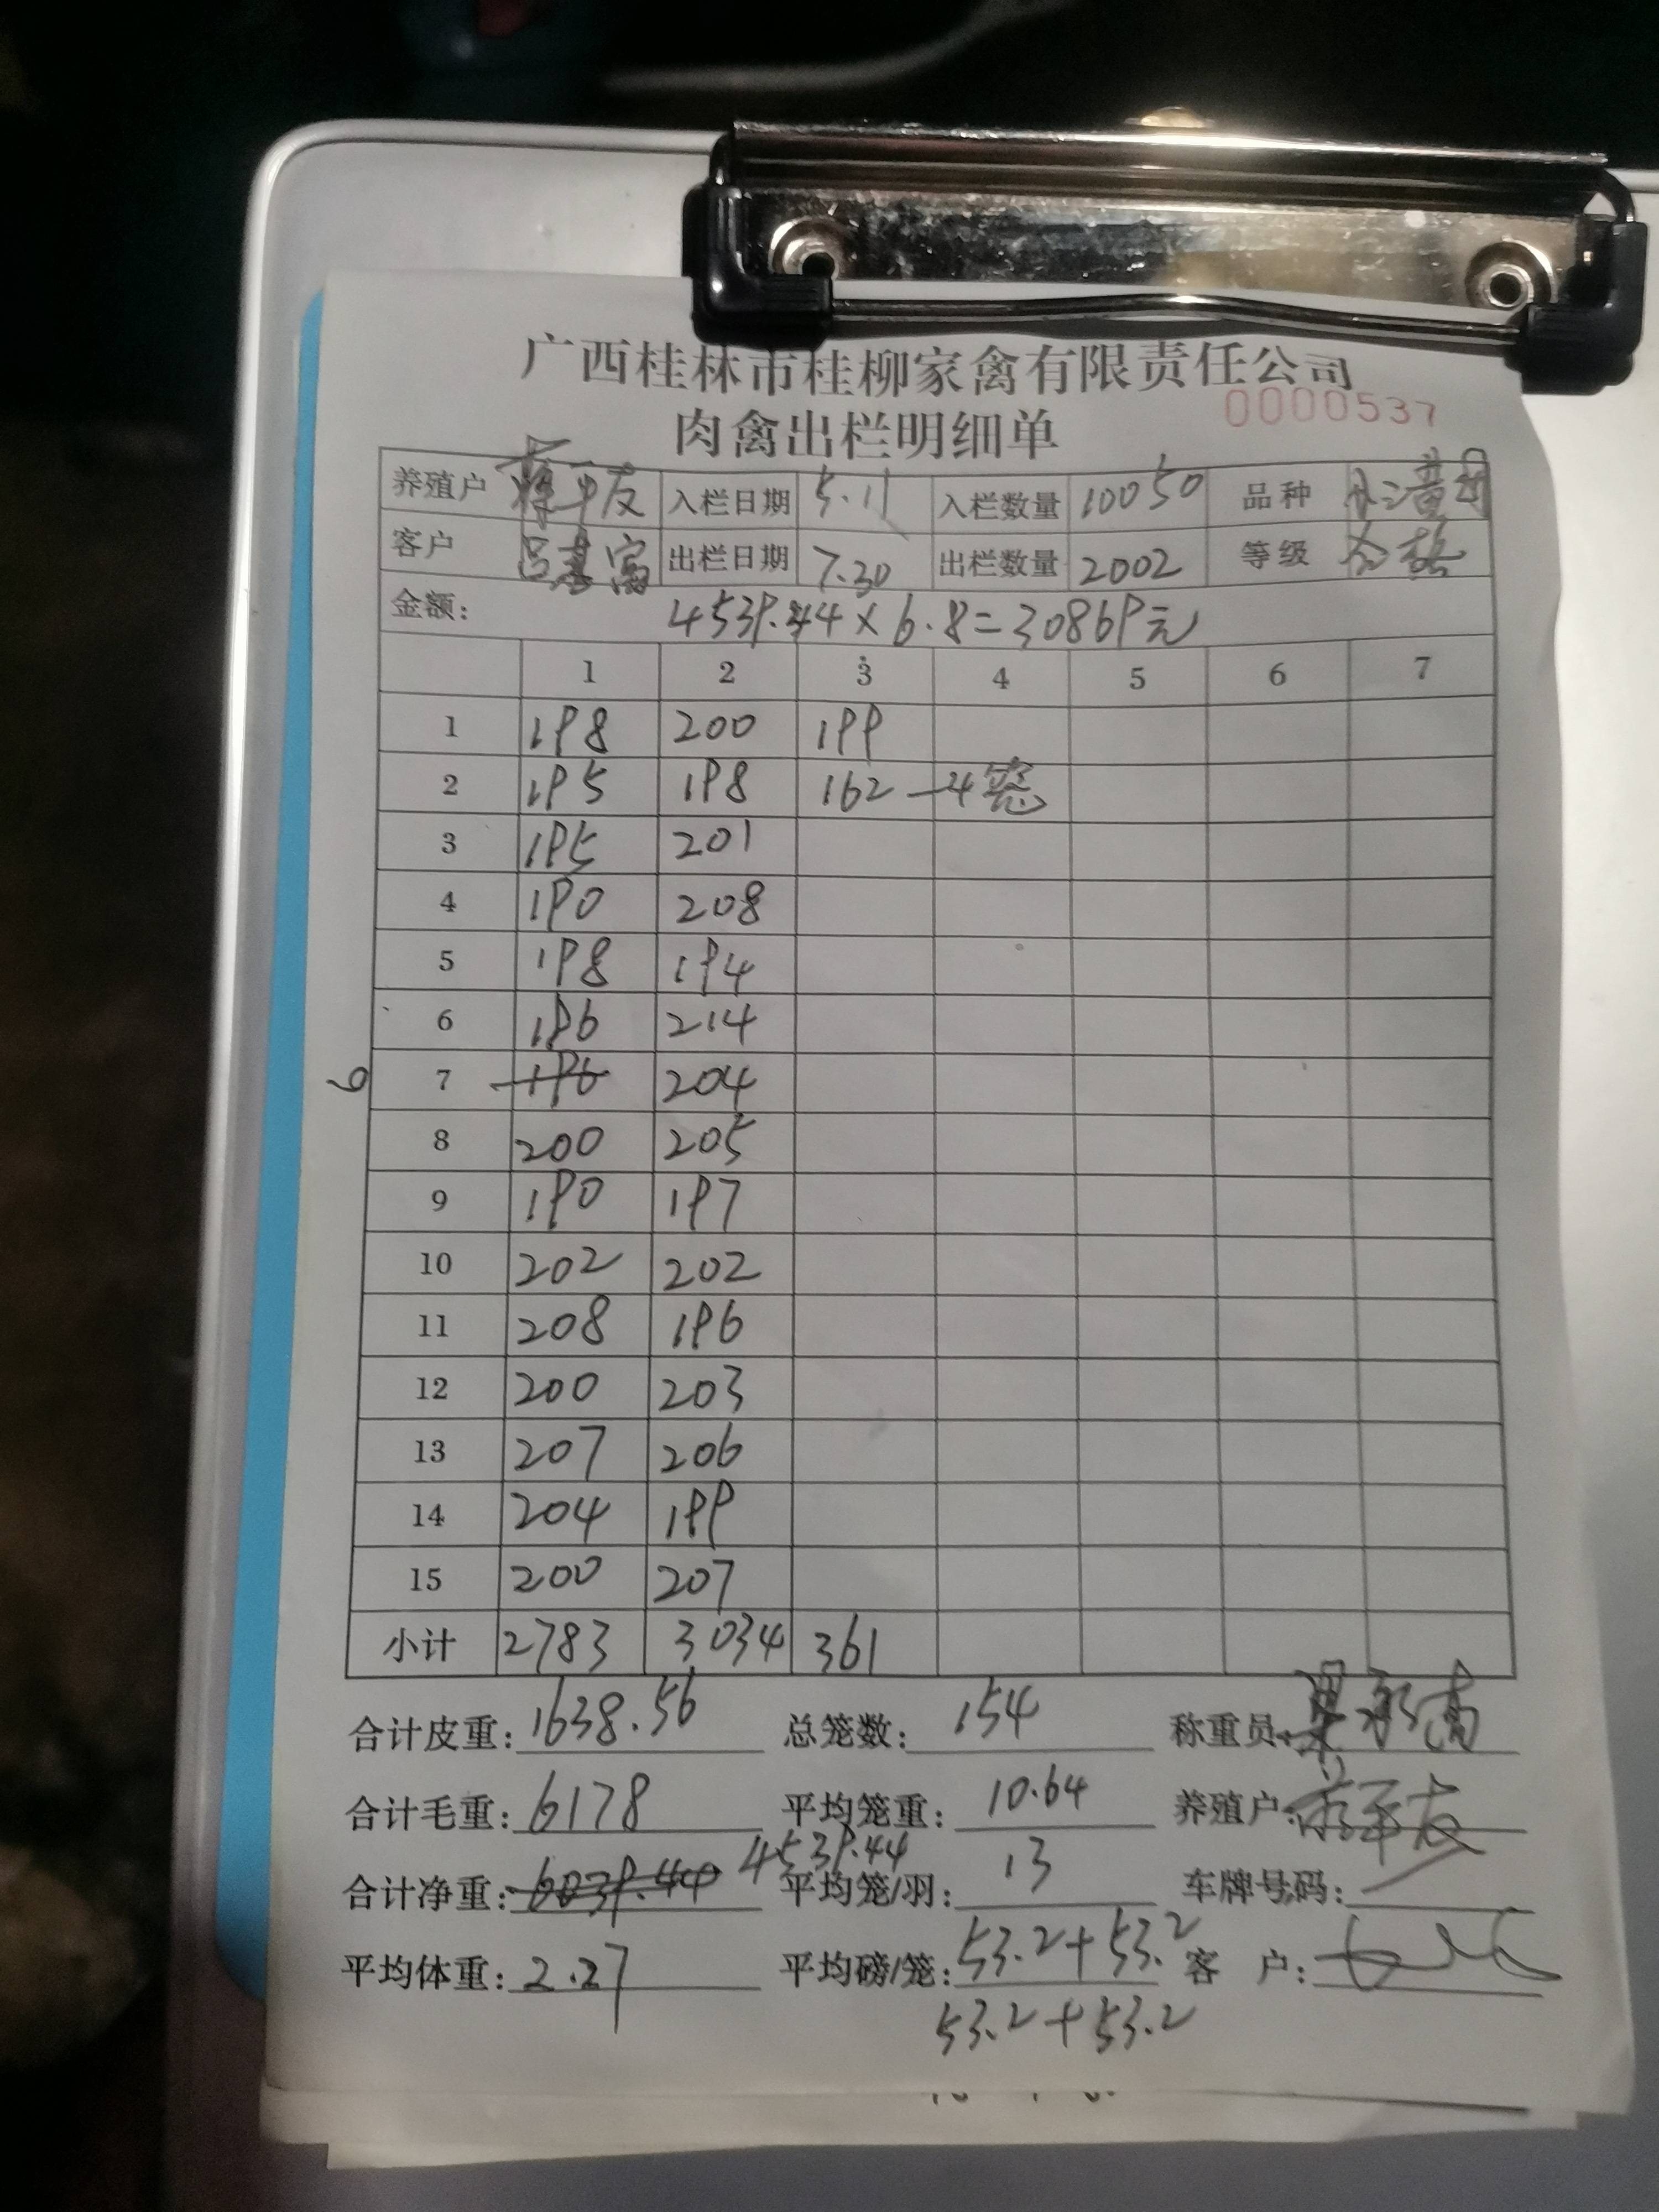 广西桂林市桂柳家禽有限责任公司
0000537
肉禽出栏明细单
养殖户 入栏日期 5.11 入栏数量 10050 品种
客户 吕基富 出栏日期 7.30 出栏数量 2002 等级 合格
金额: 4539.44×6.8=30869元
1 2 3 4 5 6 7
1 198 200 199
2 195 198 162 — 4笼
3 195 201
4 190 208
5 198 194
6 196 214
6 7 196 204
8 200 205
9 190 197
10 202 202
11 208 196
12 200 203
13 207 206
14 204 199
15 200 207
小计 2783 3034 361
合计皮重: 1638.56 总笼数: 154 称重员:
合计毛重: 6178 平均笼重: 10.64 养殖户:
合计净重: 6039.44 4539.44 平均笼/羽: 13 车牌号码:
平均体重: 2.27 平均磅/笼: 53.2+53.2 客 户:
53.2+53.2